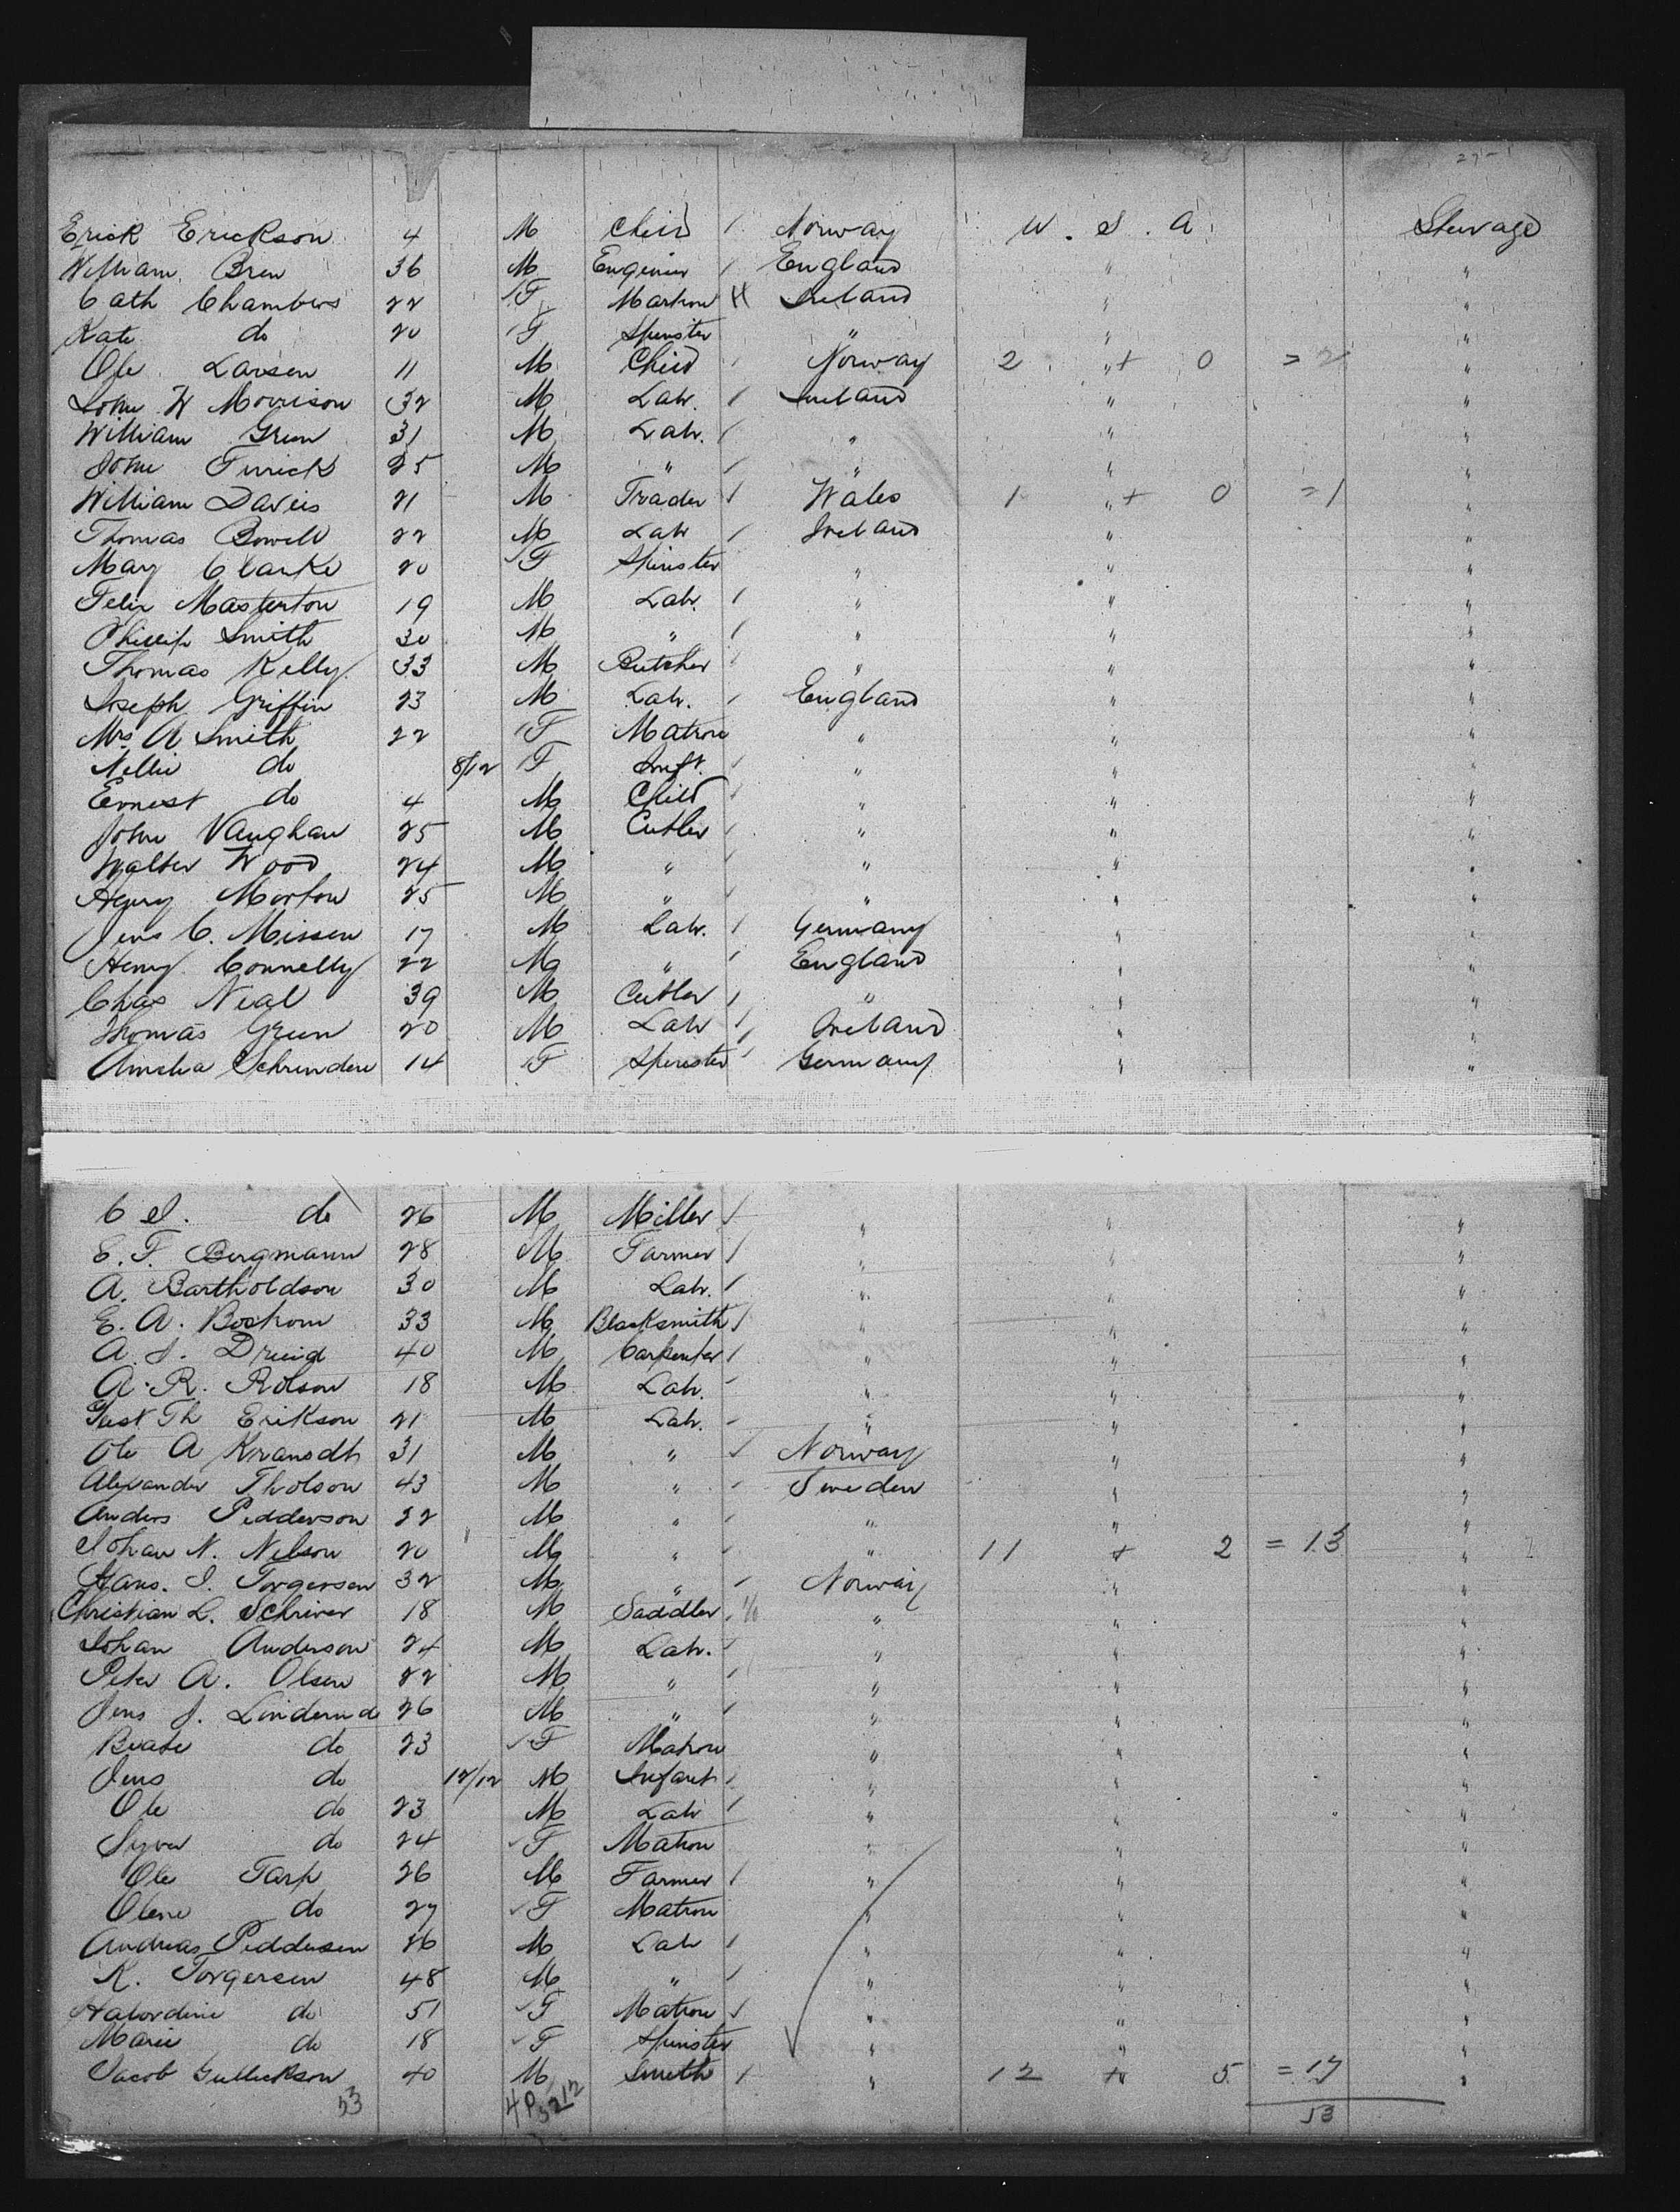 27
Erick Erickson 4 M Child / Norway U.S.A. Steerage
William Bren 36 M Engineer / England " "
Cath Chambers 22 F Matron H Ireland " "
Kate do 20 F Spinster " " "
Ole Larsen 11 M Child Norway 2 " + 0 = 2 "
John W Morrison 32 M Labr. / Ireland " "
William Green 31 M Labr. / " " "
John 25 M " / " " "
William Davies 21 M Trader / Wales 1 " + 0 = 1 "
Thomas Bowell 22 M Labr / Ireland " "
Mary Clarke 20 F Spinster " " "
Felix Masterton 19 M Labr. / " " "
Phillip Smith 30 M " / " " "
Thomas Kelly 33 M Butcher / " " "
Joseph Griffin 23 M Labr. / England " "
Mrs A Smith 22 F Matron " " "
Nellie do 8/12 F Inft. / " " "
Ernest do 4 M Child / " " "
John Vaughan 25 M Cutler / " " "
Walter Wood 24 M " / " " "
Henry Morton 25 M " / " " "
Jens C. Missen 17 M Labr. / Germany " "
Henry Connelly 22 M " / England " "
Chas Neal 39 M Cutler / " " "
Thomas Green 20 M Labr / Ireland " "
Amelia 14 F Spinster / Germany " "
C J. do 26 M Miller / " " "
E. F. Bergmann 28 M Farmer / " " "
A. Bartholdson 30 M Labr. / " " "
E. A. Bostrom 33 M Blacksmith / " " "
A. J. Druid 40 M Carpenter / " " "
A. R. Rolson 18 M Labr. " " "
Gust Th Erikson 21 M Labr. " " "
Ole A 31 M " / Norway " "
Alexander Tholson 43 M " Sweden " "
Anders Pedderson 22 M " " " "
Johan N. Nelson 20 M " " 11 + 2 = 13 "
Hans. J. Torgersen 32 M " Norway " "
Christian L. Schriver 18 M Saddler " " "
Johan Anderson 24 M Labr. " " "
Peter A. Olsen 22 M " / " " "
Jens J. 26 M " / " " "
Beate do 23 F Matron " " "
Jens do 12/12 M Infant / " " "
Ole do 23 M Labr / " " "
do 24 F Matron " " "
Ole Tarp 26 M Farmer / " " "
Olene do 27 F Matron " " "
Andreas Peddersen 26 M Labr / " " "
K. Torgersen 48 M " / " " "
do 51 F Matron / " " "
Marie do 18 F Spinster " " "
Jacob Gullickson 40 M Smith / " 12 + 5 = 17 "
53 53